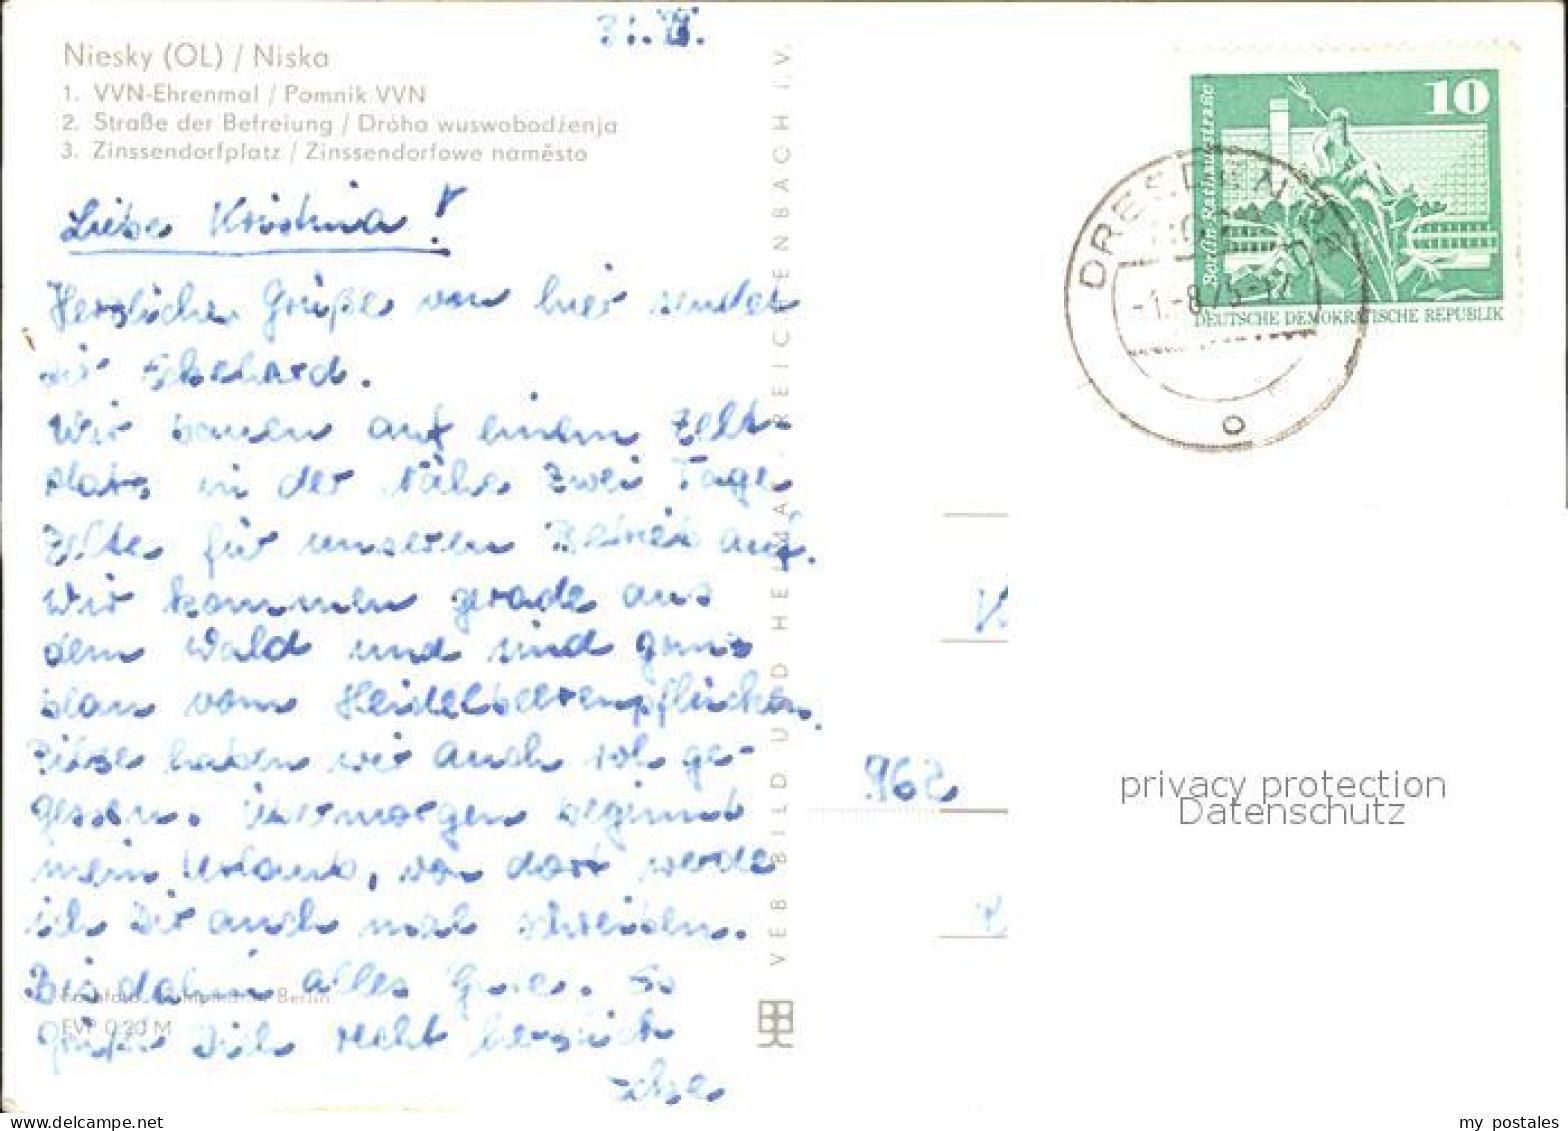 31. VII.
Niesky (OL) / Niska
1. VVN-Ehrenmal / Pomnik VVN
2. Straße der Befreiung / Dróha wuswobodźenja
3. Zinssendorfplatz / Zinssendorfowe naměsto
Liebe Kristina!
Herzliche Grüße von hier sendet
dir Ekkehard.
Wir bauen auf einem Zelt-
platz in der Nähe zwei Tage
Zelte für unseren Betrieb auf.
Wir kommen gerade aus
dem Wald und sind ganz
blau vom Heidelbeerenpflücken.
Pilze haben wir auch roh ge-
gessen. Übermorgen beginnt
mein Urlaub, von dort werde
ich Dir auch mal schreiben.
Bis dahin alles Gute. Es
grüßt Dich recht herzlich
Ekke
Berlin
EVP 0,20 M
VEB BILD UND HEIMAT REICHENBACH I. V.
10
Berlin-Rathausstraße
DEUTSCHE DEMOKRATISCHE REPUBLIK
DRESDEN
-1.-8.75-17
o
K
962
privacy protection
Datenschutz
my postales